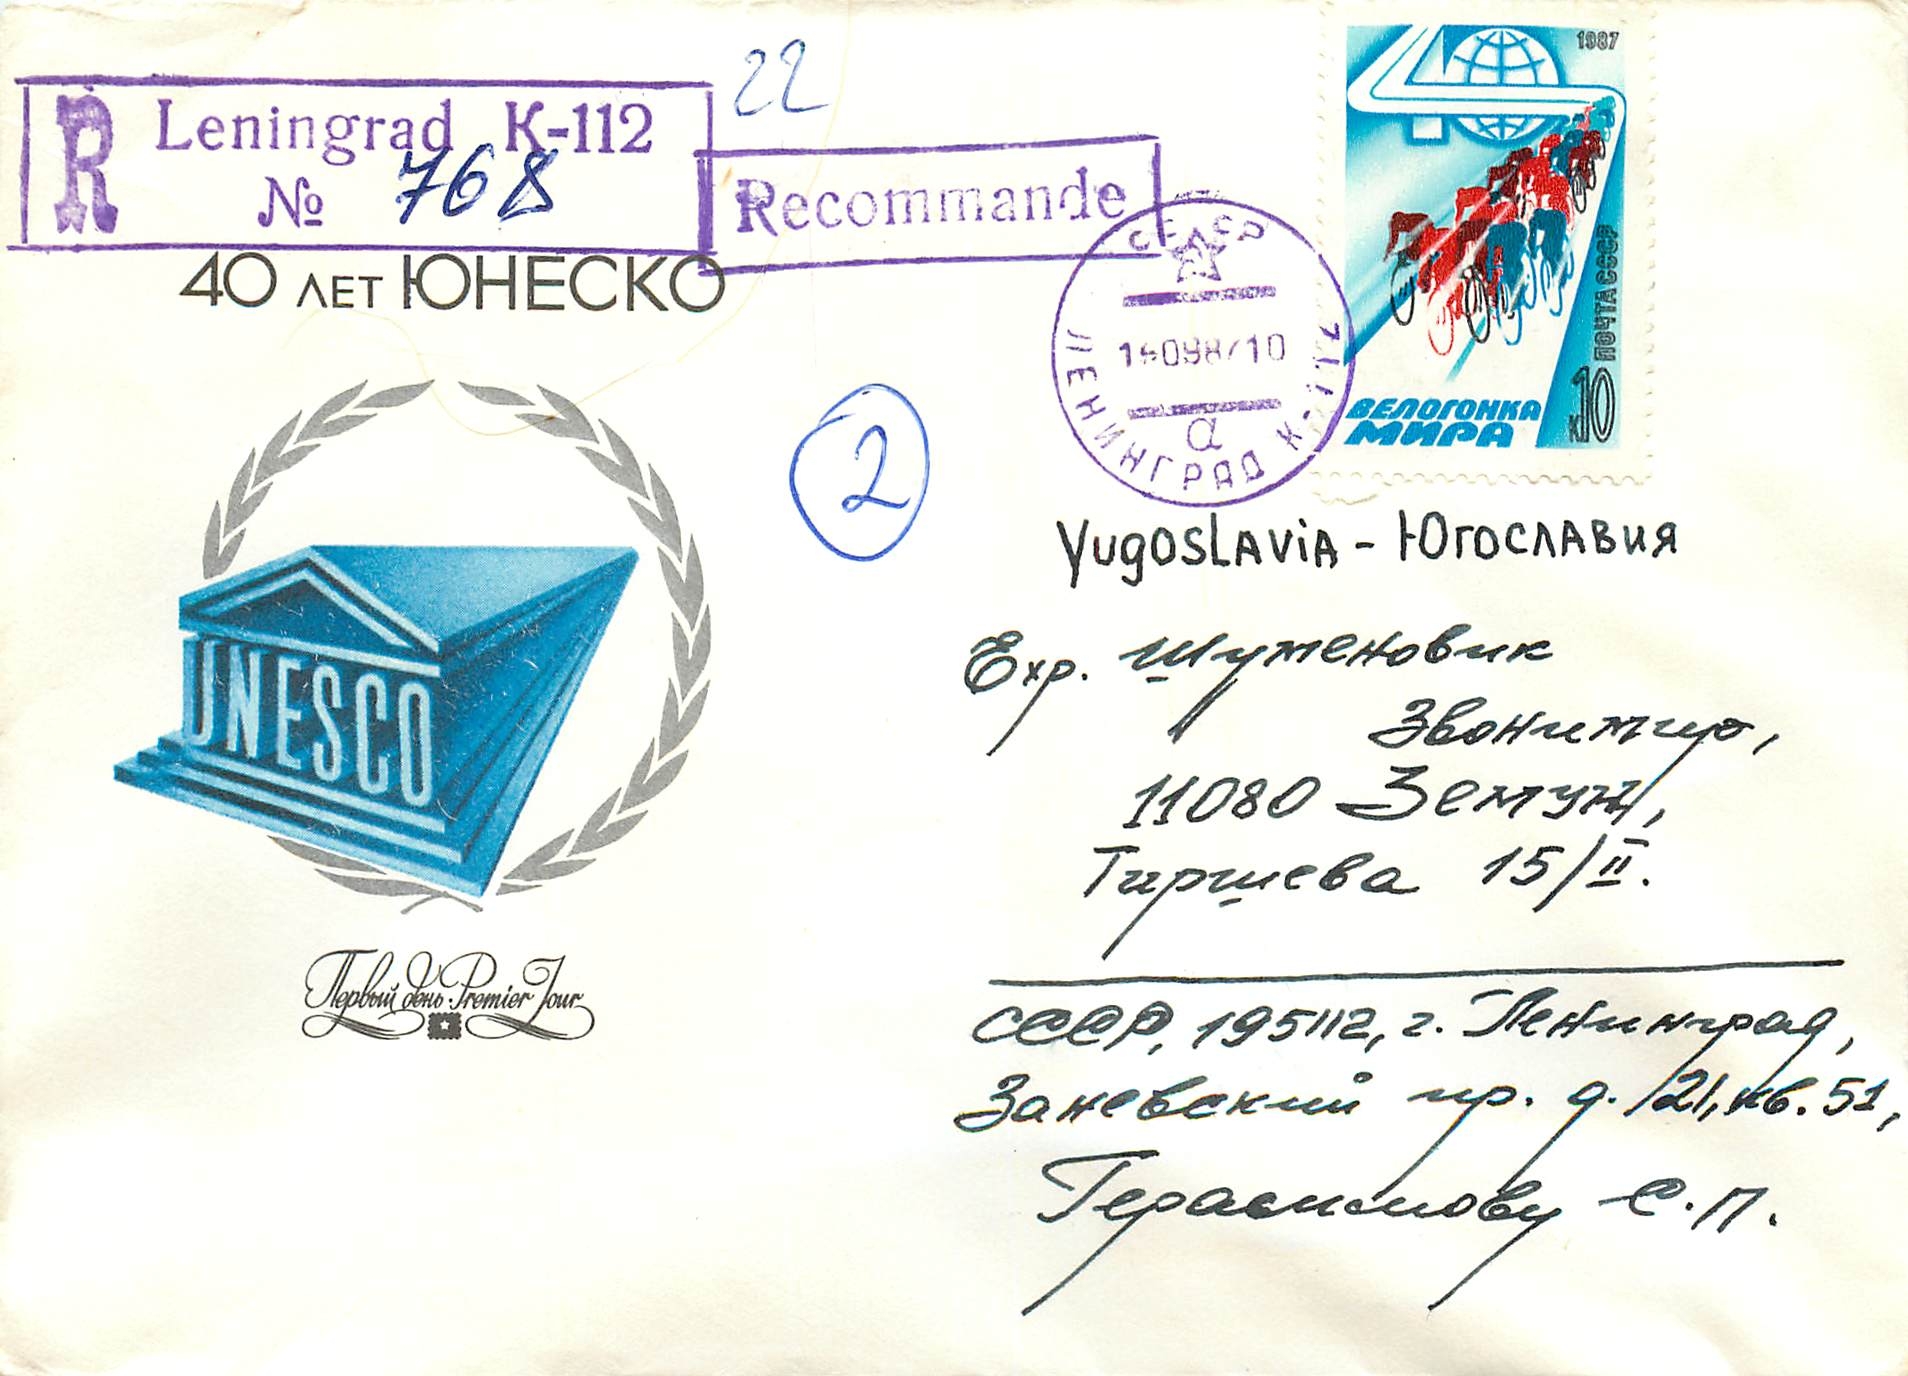 22
R Leningrad K-112
№ 768
Recommande
40 ЛЕТ ЮНЕСКО
1987
ПОЧТА СССР
ВЕЛОГОНКА
МИРА
к10
СССР
ЛЕНИНГРАД К-112
а
2
UNESCO
Первый день · Premier Jour
Yugoslavia - Югославия
Exp. Шуменовик
Звонимир,
11080 Земун,
Тиршева 15/II.
СССР, 195112, г. Ленинград,
Заневский пр. д. 121, кв. 51,
Герасимову С.П.